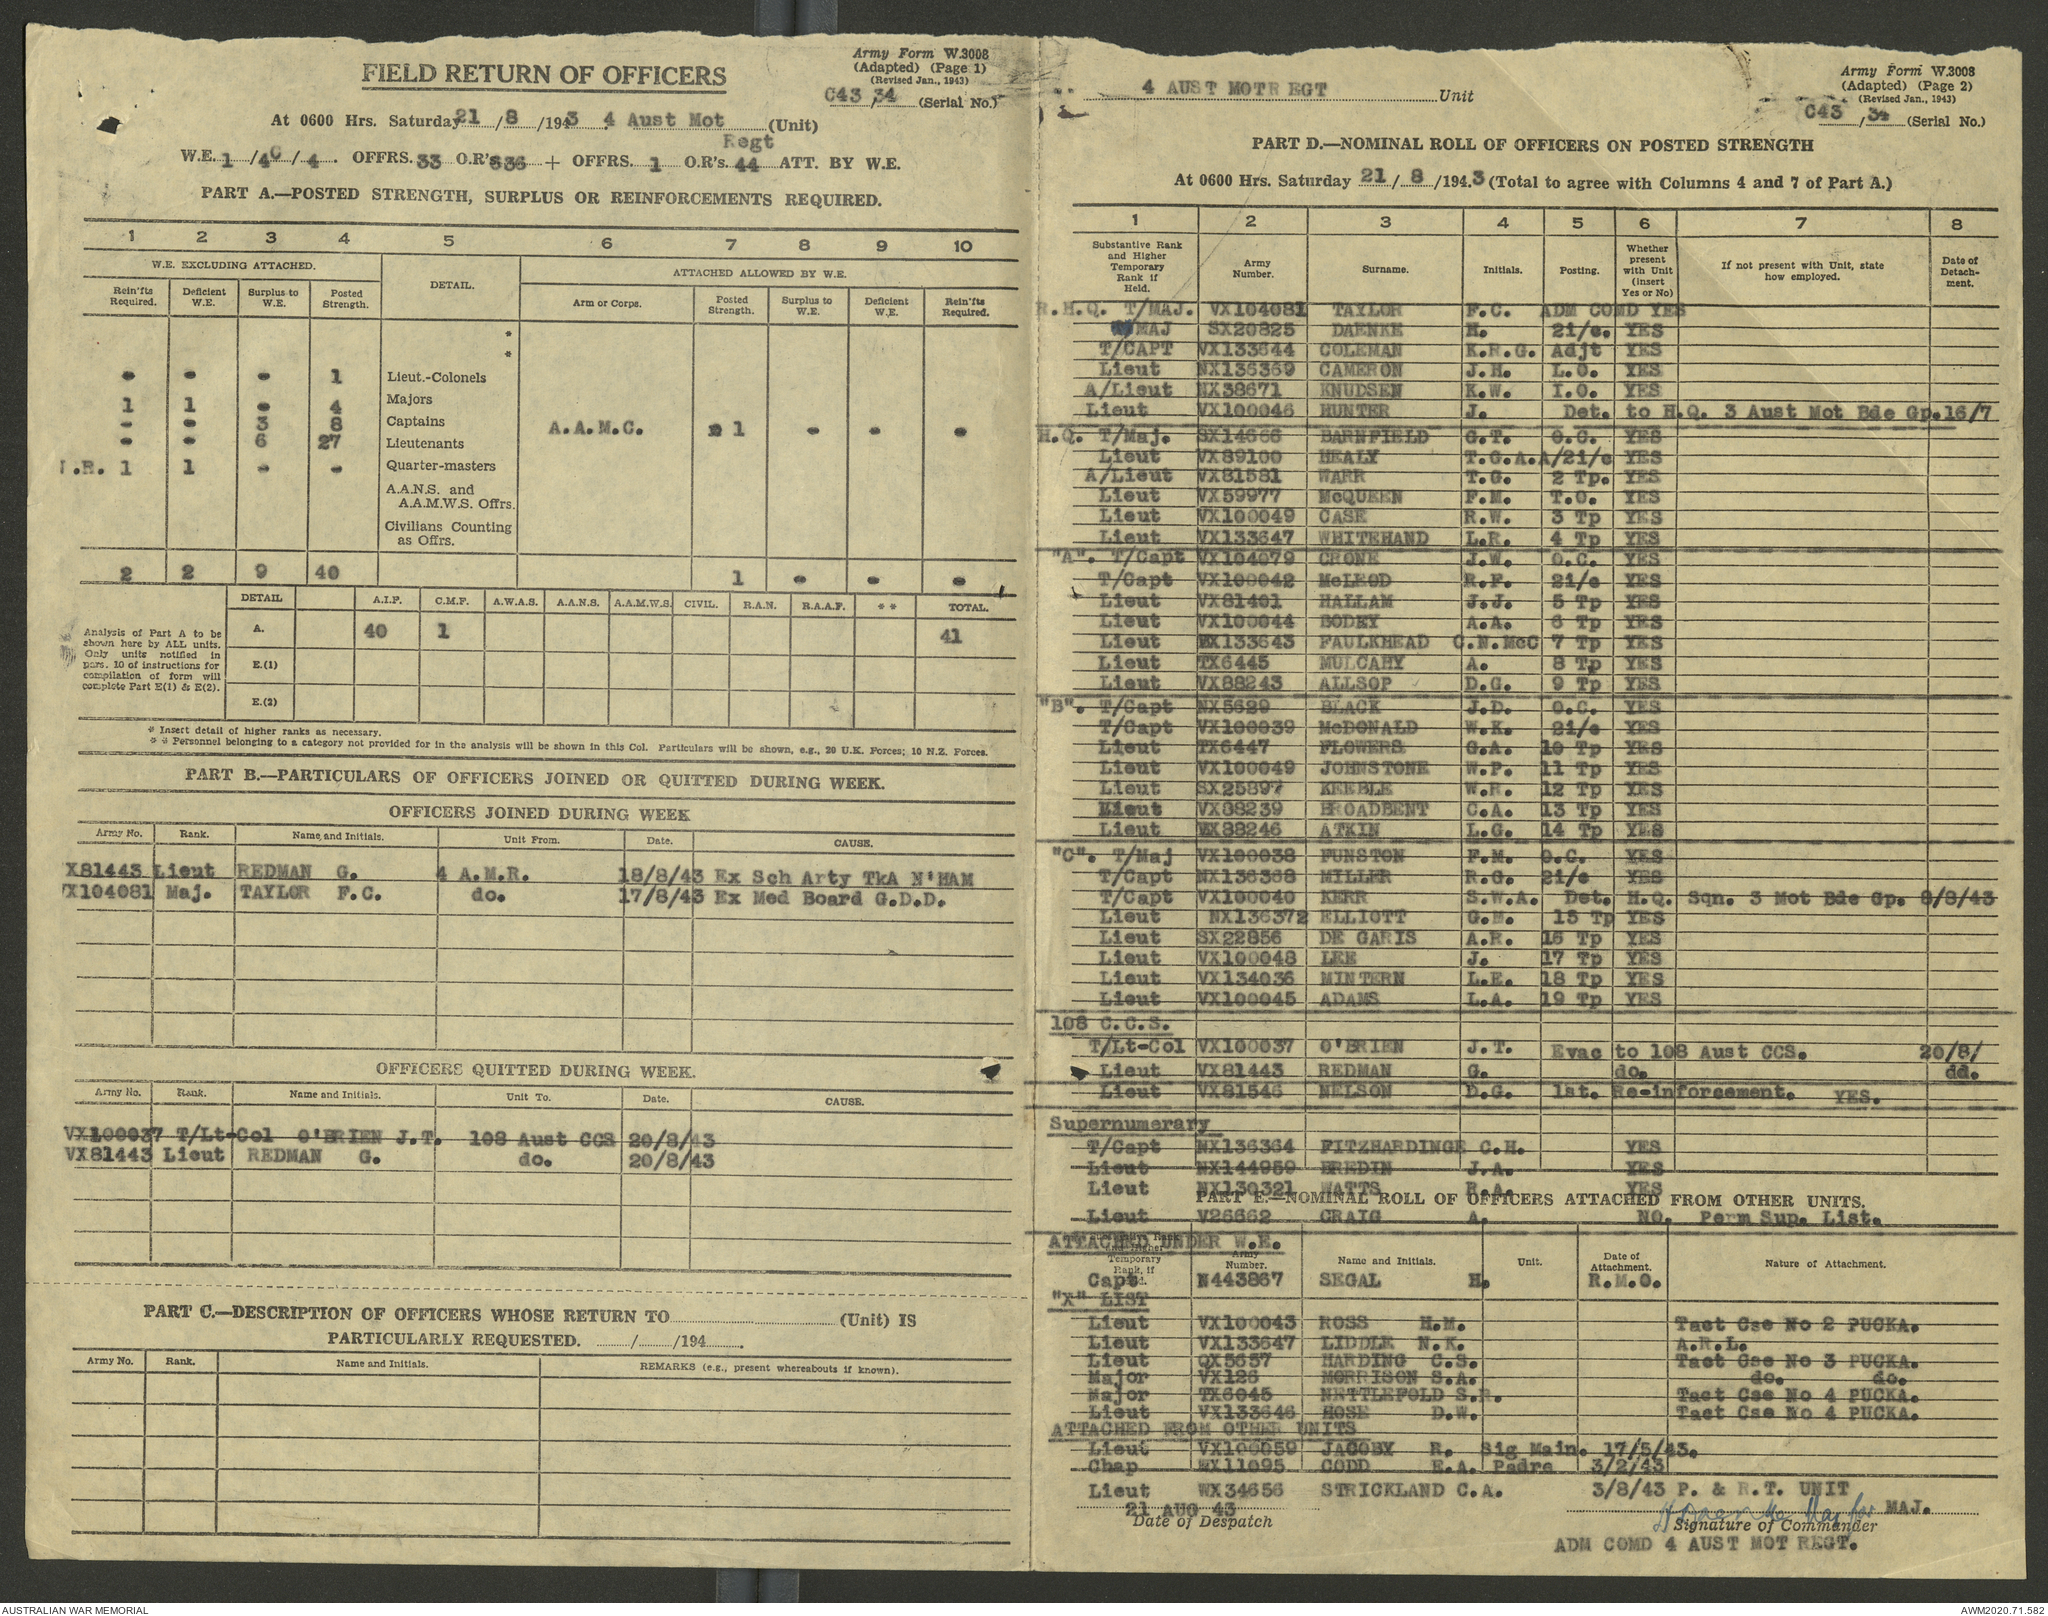 FIELD RETURN OF OFFICERS
Army Form W.3008
(Adapted) (Page 1)
(Revised Jan., 1943)
C43 / 34 (Serial No.)
At 0600 Hrs. Saturday 21 / 8 /1943 4 Aust Mot Regt (Unit)
W.E. 1 /4C / 4 . OFFRS. 33 O.R's 536 + OFFRS. 1 O.R's. 44 ATT. BY W.E.
PART A.—POSTED STRENGTH, SURPLUS OR REINFORCEMENTS REQUIRED.
1 2 3 4 5 6 7 8 9 10
W.E. EXCLUDING ATTACHED. DETAIL. ATTACHED ALLOWED BY W.E.
Rein'fts Required. Deficient W.E. Surplus to W.E. Posted Strength. Arm or Corps. Posted Strength. Surplus to W.E. Deficient W.E. Rein'fts Required.
*
*
- - - 1 Lieut.-Colonels
1 1 - 4 Majors
- - 3 8 Captains A.A.M.C. 1 - - -
- - 6 27 Lieutenants
1 1 - - Quarter-masters
A.A.N.S. and
A.A.M.W.S. Offrs.
Civilians Counting
as Offrs.
2 2 9 40 1 - - -
DETAIL A.I.F. C.M.F. A.W.A.S. A.A.N.S. A.A.M.W.S. CIVIL. R.A.N. R.A.A.F. * * TOTAL.
Analysis of Part A to be shown here by ALL units. Only units notified in pars. 10 of instructions for compilation of form will complete Part E(1) & E(2).
A. 40 1 41
E.(1)
E.(2)
* Insert detail of higher ranks as necessary.
* * Personnel belonging to a category not provided for in the analysis will be shown in this Col. Particulars will be shown, e.g., 20 U.K. Forces; 10 N.Z. Forces.
PART B.—PARTICULARS OF OFFICERS JOINED OR QUITTED DURING WEEK.
OFFICERS JOINED DURING WEEK
Army No. Rank. Name and Initials. Unit From. Date. CAUSE.
X81443 Lieut REDMAN G. 4 A.M.R. 18/8/43 Ex Sch Arty TkA N'HAM
X104081 Maj. TAYLOR F.C. do. 17/8/43 Ex Med Board G.D.D.
OFFICERS QUITTED DURING WEEK.
Army No. Rank. Name and Initials. Unit To. Date. CAUSE.
VX100037 T/Lt-Col O'BRIEN J.T. 108 Aust CCS 20/8/43
VX81443 Lieut REDMAN G. do. 20/8/43
PART C.—DESCRIPTION OF OFFICERS WHOSE RETURN TO (Unit) IS
PARTICULARLY REQUESTED. / /194 .
Army No. Rank. Name and Initials. REMARKS (e.g., present whereabouts if known).
4 AUST MOTR EGT Unit
Army Form W.3008
(Adapted) (Page 2)
(Revised Jan., 1943)
C43 / 34 (Serial No.)
PART D.—NOMINAL ROLL OF OFFICERS ON POSTED STRENGTH
At 0600 Hrs. Saturday 21 / 8 /1943 (Total to agree with Columns 4 and 7 of Part A.)
1 2 3 4 5 6 7 8
Substantive Rank and Higher Temporary Rank if Held. Army Number. Surname. Initials. Posting. Whether present with Unit (Insert Yes or No) If not present with Unit, state how employed. Date of Detachment.
R.H.Q. T/MAJ. VX104081 TAYLOR F.C. ADM COMD YES
MAJ SX20825 DAENKE H. 2i/c. YES
T/CAPT VX133644 COLEMAN K.R.G. Adjt YES
Lieut NX136369 CAMERON J.H. L.O. YES
A/Lieut NX38671 KNUDSEN K.W. I.O. YES
Lieut VX100046 HUNTER J. Det. to H.Q. 3 Aust Mot Bde Gp. 16/7
H.Q. T/Maj. SX14666 BARNFIELD G.T. O.C. YES
Lieut VX89100 HEALY T.G.A. A/2i/c YES
A/Lieut VX81581 WARR T.G. 2 Tp. YES
Lieut VX59977 McQUEEN F.M. T.O. YES
Lieut VX100049 CASE R.W. 3 Tp YES
Lieut VX133647 WHITEHAND L.R. 4 Tp YES
"A". T/Capt VX104079 CRONE J.W. O.C. YES
T/Capt VX100042 McLEOD R.F. 2i/c YES
Lieut VX81401 HALLAM J.J. 5 Tp YES
Lieut VX100044 BODEY A.A. 6 Tp YES
Lieut VX133643 FAULKHEAD C.N.McC 7 Tp YES
Lieut TX6445 MULCAHY A. 8 Tp YES
Lieut VX88243 ALLSOP D.G. 9 Tp YES
"B". T/Capt NX5629 BLACK J.D. O.C. YES
T/Capt VX100039 McDONALD W.K. 2i/c YES
Lieut TX6447 FLOWERS G.A. 10 Tp YES
Lieut VX100049 JOHNSTONE W.P. 11 Tp YES
Lieut SX25897 KEEBLE W.R. 12 Tp YES
Lieut VX88239 BROADBENT C.A. 13 Tp YES
Lieut VX88246 ATKIN L.G. 14 Tp YES
"C". T/Maj VX100038 FUNSTON F.M. O.C. YES
T/Capt NX136368 MILLER R.G. 2i/c YES
T/Capt VX100040 KERR S.W.A. Det. H.Q. Sqn. 3 Mot Bde Gp. 8/8/43
Lieut NX136372 ELLIOTT G.M. 15 Tp YES
Lieut SX22856 DE GARIS A.R. 16 Tp YES
Lieut VX100048 LEE J. 17 Tp YES
Lieut VX134036 MINTERN L.E. 18 Tp YES
Lieut VX100045 ADAMS L.A. 19 Tp YES
108 C.C.S.
T/Lt-Col VX100037 O'BRIEN J.T. Evac to 108 Aust CCS. 20/8/
Lieut VX81443 REDMAN G. do. dd.
Lieut VX81546 NELSON D.G. 1st. Re-inforcement. YES.
Supernumerary
T/Capt NX136364 FITZHARDINGE C.H. YES
Lieut NX144959 BREDIN J.A. YES
Lieut NX130321 WATTS R.A. YES
PART E.—NOMINAL ROLL OF OFFICERS ATTACHED FROM OTHER UNITS.
Lieut V26662 CRAIG A. NO. Perm Sup. List.
ATTACHED UNDER W.E.
Temporary Rank, if Army Number. Name and Initials. Unit. Date of Attachment. Nature of Attachment.
Capt N443867 SEGAL H. R.M.O.
"X" LIST
Lieut VX100043 ROSS H.M. Tact Cse No 2 PUCKA.
Lieut VX133647 LIDDLE N.K. A.R.L.
Lieut QX5637 HARDING C.S. Tact Cse No 3 PUCKA.
Major VX126 MORRISON S.A. do. do.
Major TX6045 NETTLEFOLD S.R. Tact Cse No 4 PUCKA.
Lieut VX133646 HOSE D.W. Tact Cse No 4 PUCKA.
ATTACHED FROM OTHER UNITS
Lieut VX100059 JACOBY R. Sig Main. 17/5/43.
Chap 11095 CODD E.A. Padre 3/2/43
Lieut WX34656 STRICKLAND C.A. 3/8/43 P. & R.T. UNIT
21 AUG 43 Maj for MAJ.
Date of Despatch Signature of Commander
ADM COMD 4 AUST MOT REGT.
AUSTRALIAN WAR MEMORIAL
AWM2020.71.582